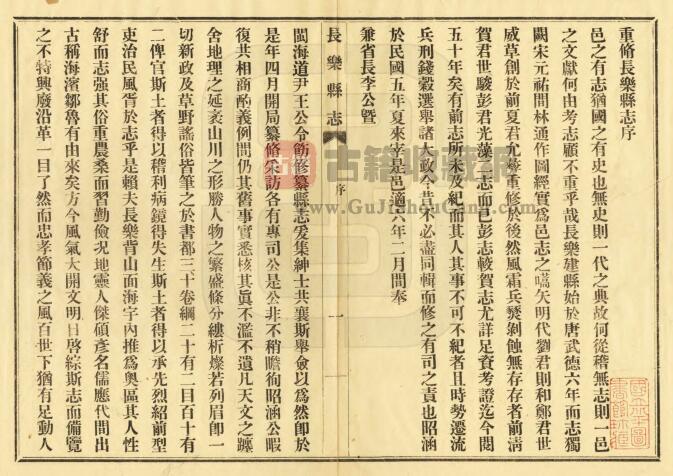 重修長樂縣志序
邑之有志猶國之有史也無史則一代之典故何從稽無志則一邑
之文獻何由考志顧不重乎哉長樂建縣始於唐武德六年而志獨
闕宋元祐間林通作圖經實爲邑志之嚆矢明代劉君則和鄭君世
威草創於前夏君允彝重修於後然風霜兵燹剝蝕無存存者前清
賀君世駿彭君光藻二志而已彭志較賀志尤詳足資考證迄今閱
五十年矣有前志所未及紀而其人其事不可不紀者且時勢遷流
兵刑錢穀選舉諸大政今昔不必盡同輯而修之有司之責也昭涵
於民國五年夏來宰是邑適六年二月間奉
兼省長李公曁
長樂縣志
序
一
閩海道尹王公令飭修纂縣志爰集紳士共襄斯舉僉以爲然卽於
是年四月開局纂修采訪各有專司公是公非不稍瞻徇昭涵公暇
復共相商酌義例間仍其舊事實悉核其眞不濫不遺凡天文之躔
舍地理之延袤山川之形勝人物之繁盛條分縷析燦若列眉卽一
切新政及草野謠俗皆筆之於書都三十卷綱二十有二目百十有
二俾官斯土者得以稽利病鏡得失生斯土者得以承先烈紹前型
吏治民風胥於志乎是賴夫長樂背山面海宇內推爲奧區其人性
舒而志强其俗重農桑而習勤儉况地靈人傑碩彥名儒應代間出
古稱海濱鄒魯有由來矣方今風氣大開文明日啓綜斯志而備覽
之不特興廢沿革一目了然而忠孝節義之風百世下猶有足動人
古籍收藏網
www.GuJiShouCang.com